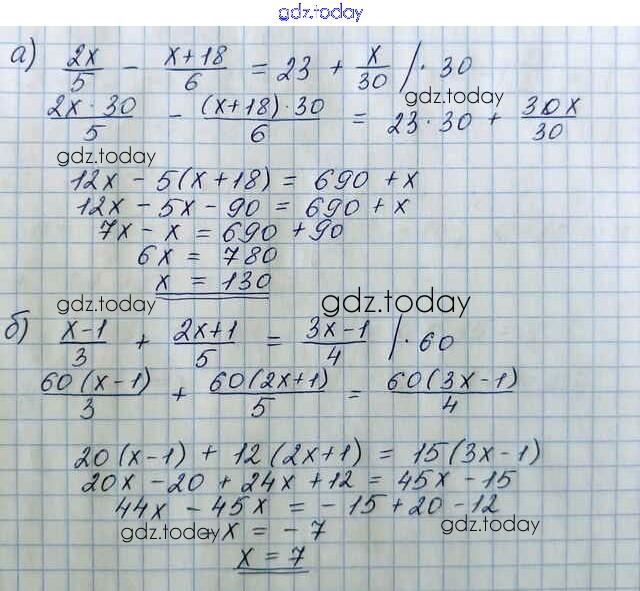 gdz.today
а) 2x/5 - x+18/6 = 23 + x/30 /· 30
gdz.today
2x·30/5 - (x+18)·30/6 = 23·30 + 30x/30
gdz.today
12x - 5(x+18) = 690 + x
12x - 5x - 90 = 690 + x
7x - x = 690 + 90
6x = 780
x = 130
gdz.today gdz.today
б) x-1/3 + 2x+1/5 = 3x-1/4 /· 60
60(x-1)/3 + 60(2x+1)/5 = 60(3x-1)/4
20(x-1) + 12(2x+1) = 15(3x-1)
20x - 20 + 24x + 12 = 45x - 15
44x - 45x = -15 + 20 - 12
gdz.today gdz.today
-x = -7
x = 7